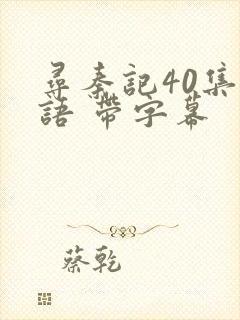 尋秦記40集
語 帶字幕
蔡乾